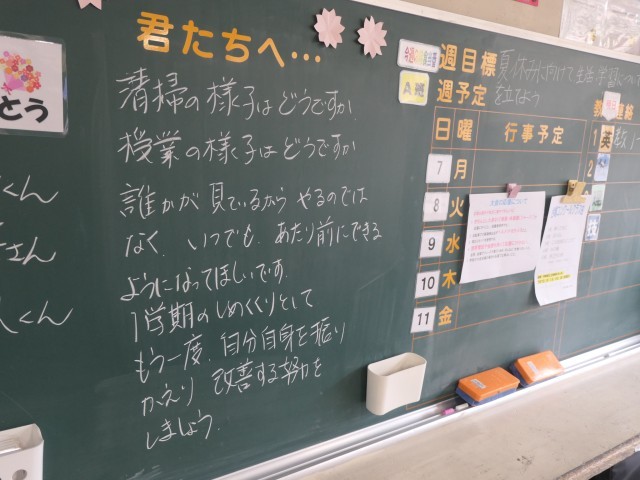 君たちへ…
清掃の様子はどうですか
授業の様子はどうですか
誰かが見ているからやるのでは
なく、いつでも、あたり前にできる
ようになってほしいです。
1学期のしめくくりとして
もう一度、自分自身を振り
かえり改善する努力を
しましょう。
とう
くん
さん
くん
週目標
夏休みに向けて生活、学習につ
を立てよう
A週
週予定
日 曜 行事予定
7 月
8 火
9 水
10 木
11 金
連絡
1 英
2
技